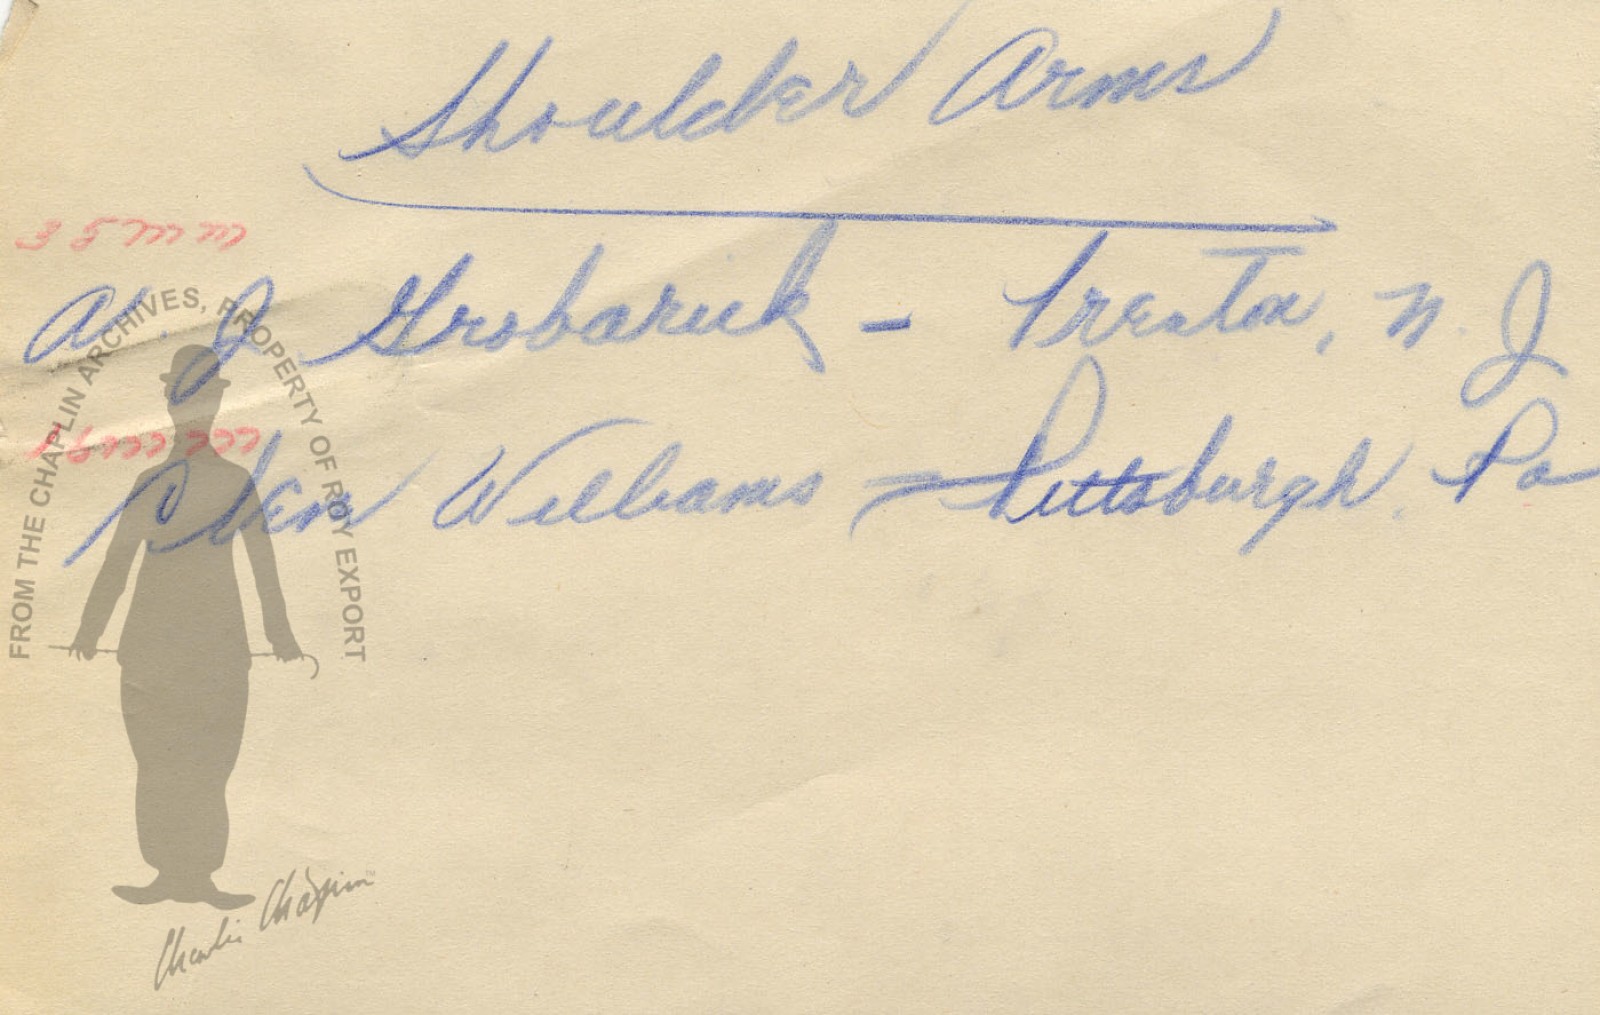 Shoulder Arms
35 mm
Al. J. Grobarick – Trenton, N. J
16 mm
Clem Williams – Pittsburgh, Pa
FROM THE CHAPLIN ARCHIVES, PROPERTY OF ROY EXPORT
Charlie Chaplin™